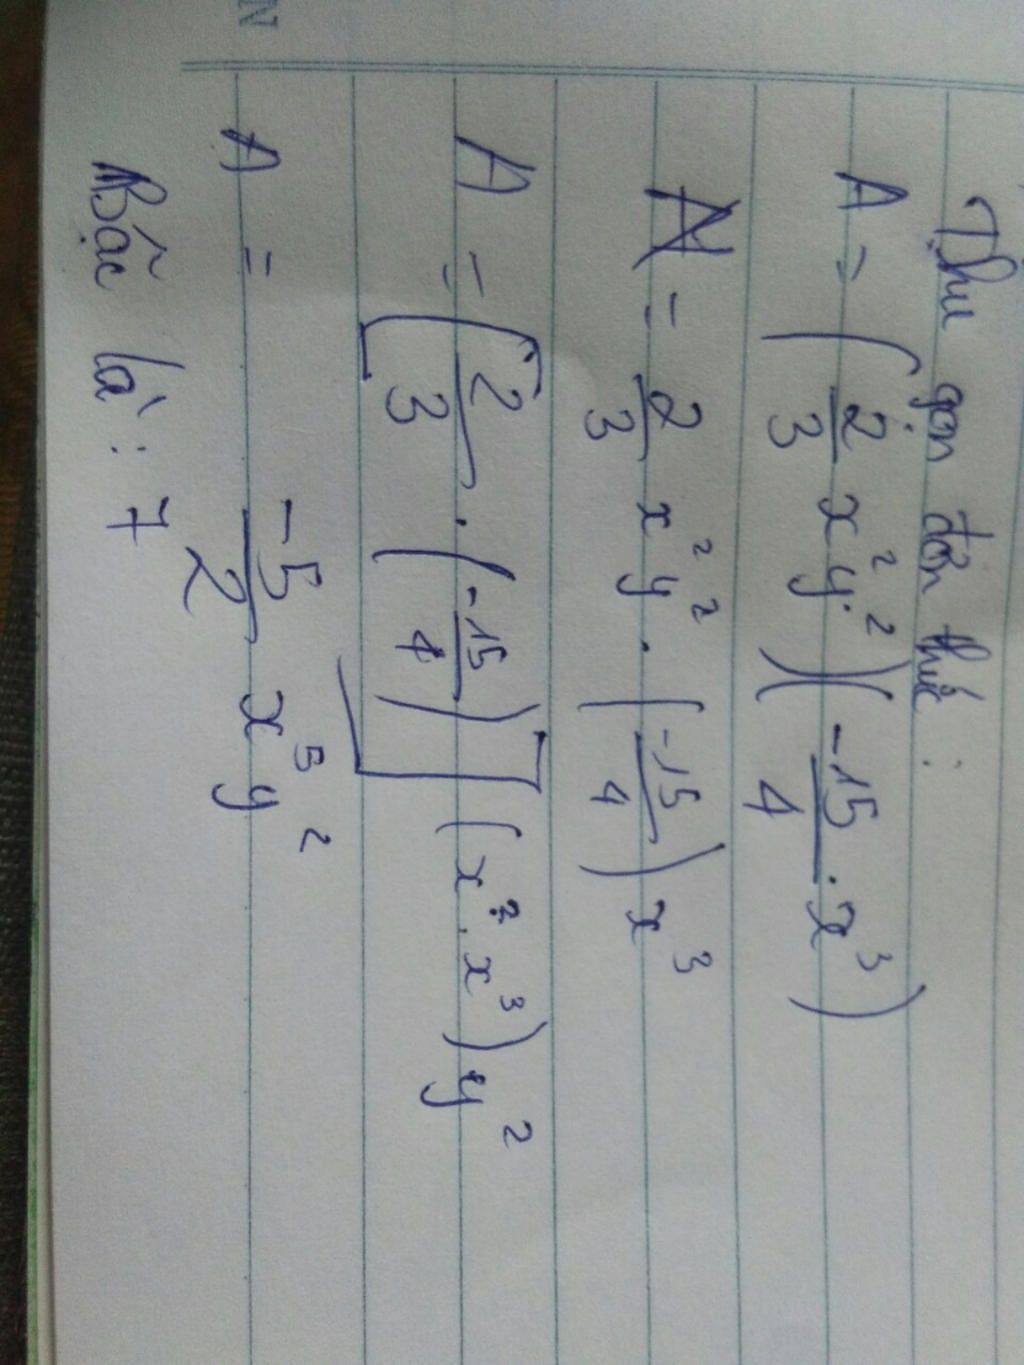 Thu gọn đơn thức:
A = (2/3 x²y²)(-15/4 . x³)
A = 2/3 x²y² . (-15/4) x³
A = [2/3 . (-15/4)] (x² . x³) y²
A = -5/2 x⁵y²
Bậc là : 7
N